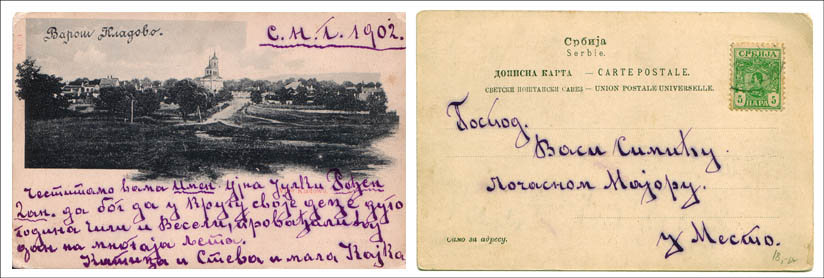 Варош Кладово.
С.Н.Г. 1902.
Честитамо вама Имен ујна Јулки Рођен
дан. да бог да у кругу своје деце дуго
година Чили и Весели, провађали овај
дан на многаја љета.
Катица и Стева и мала Кајка
Србија
Serbie.
ДОПИСНА КАРТА — CARTE POSTALE.
СВЕТСКИ ПОШТАНСКИ САВЕЗ — UNION POSTALE UNIVERSELLE.
СРБИЈА
5 ПАРА 5
Господ.
Васи Симићу.
Почасном Мајору.
у Место.
Само за адресу.